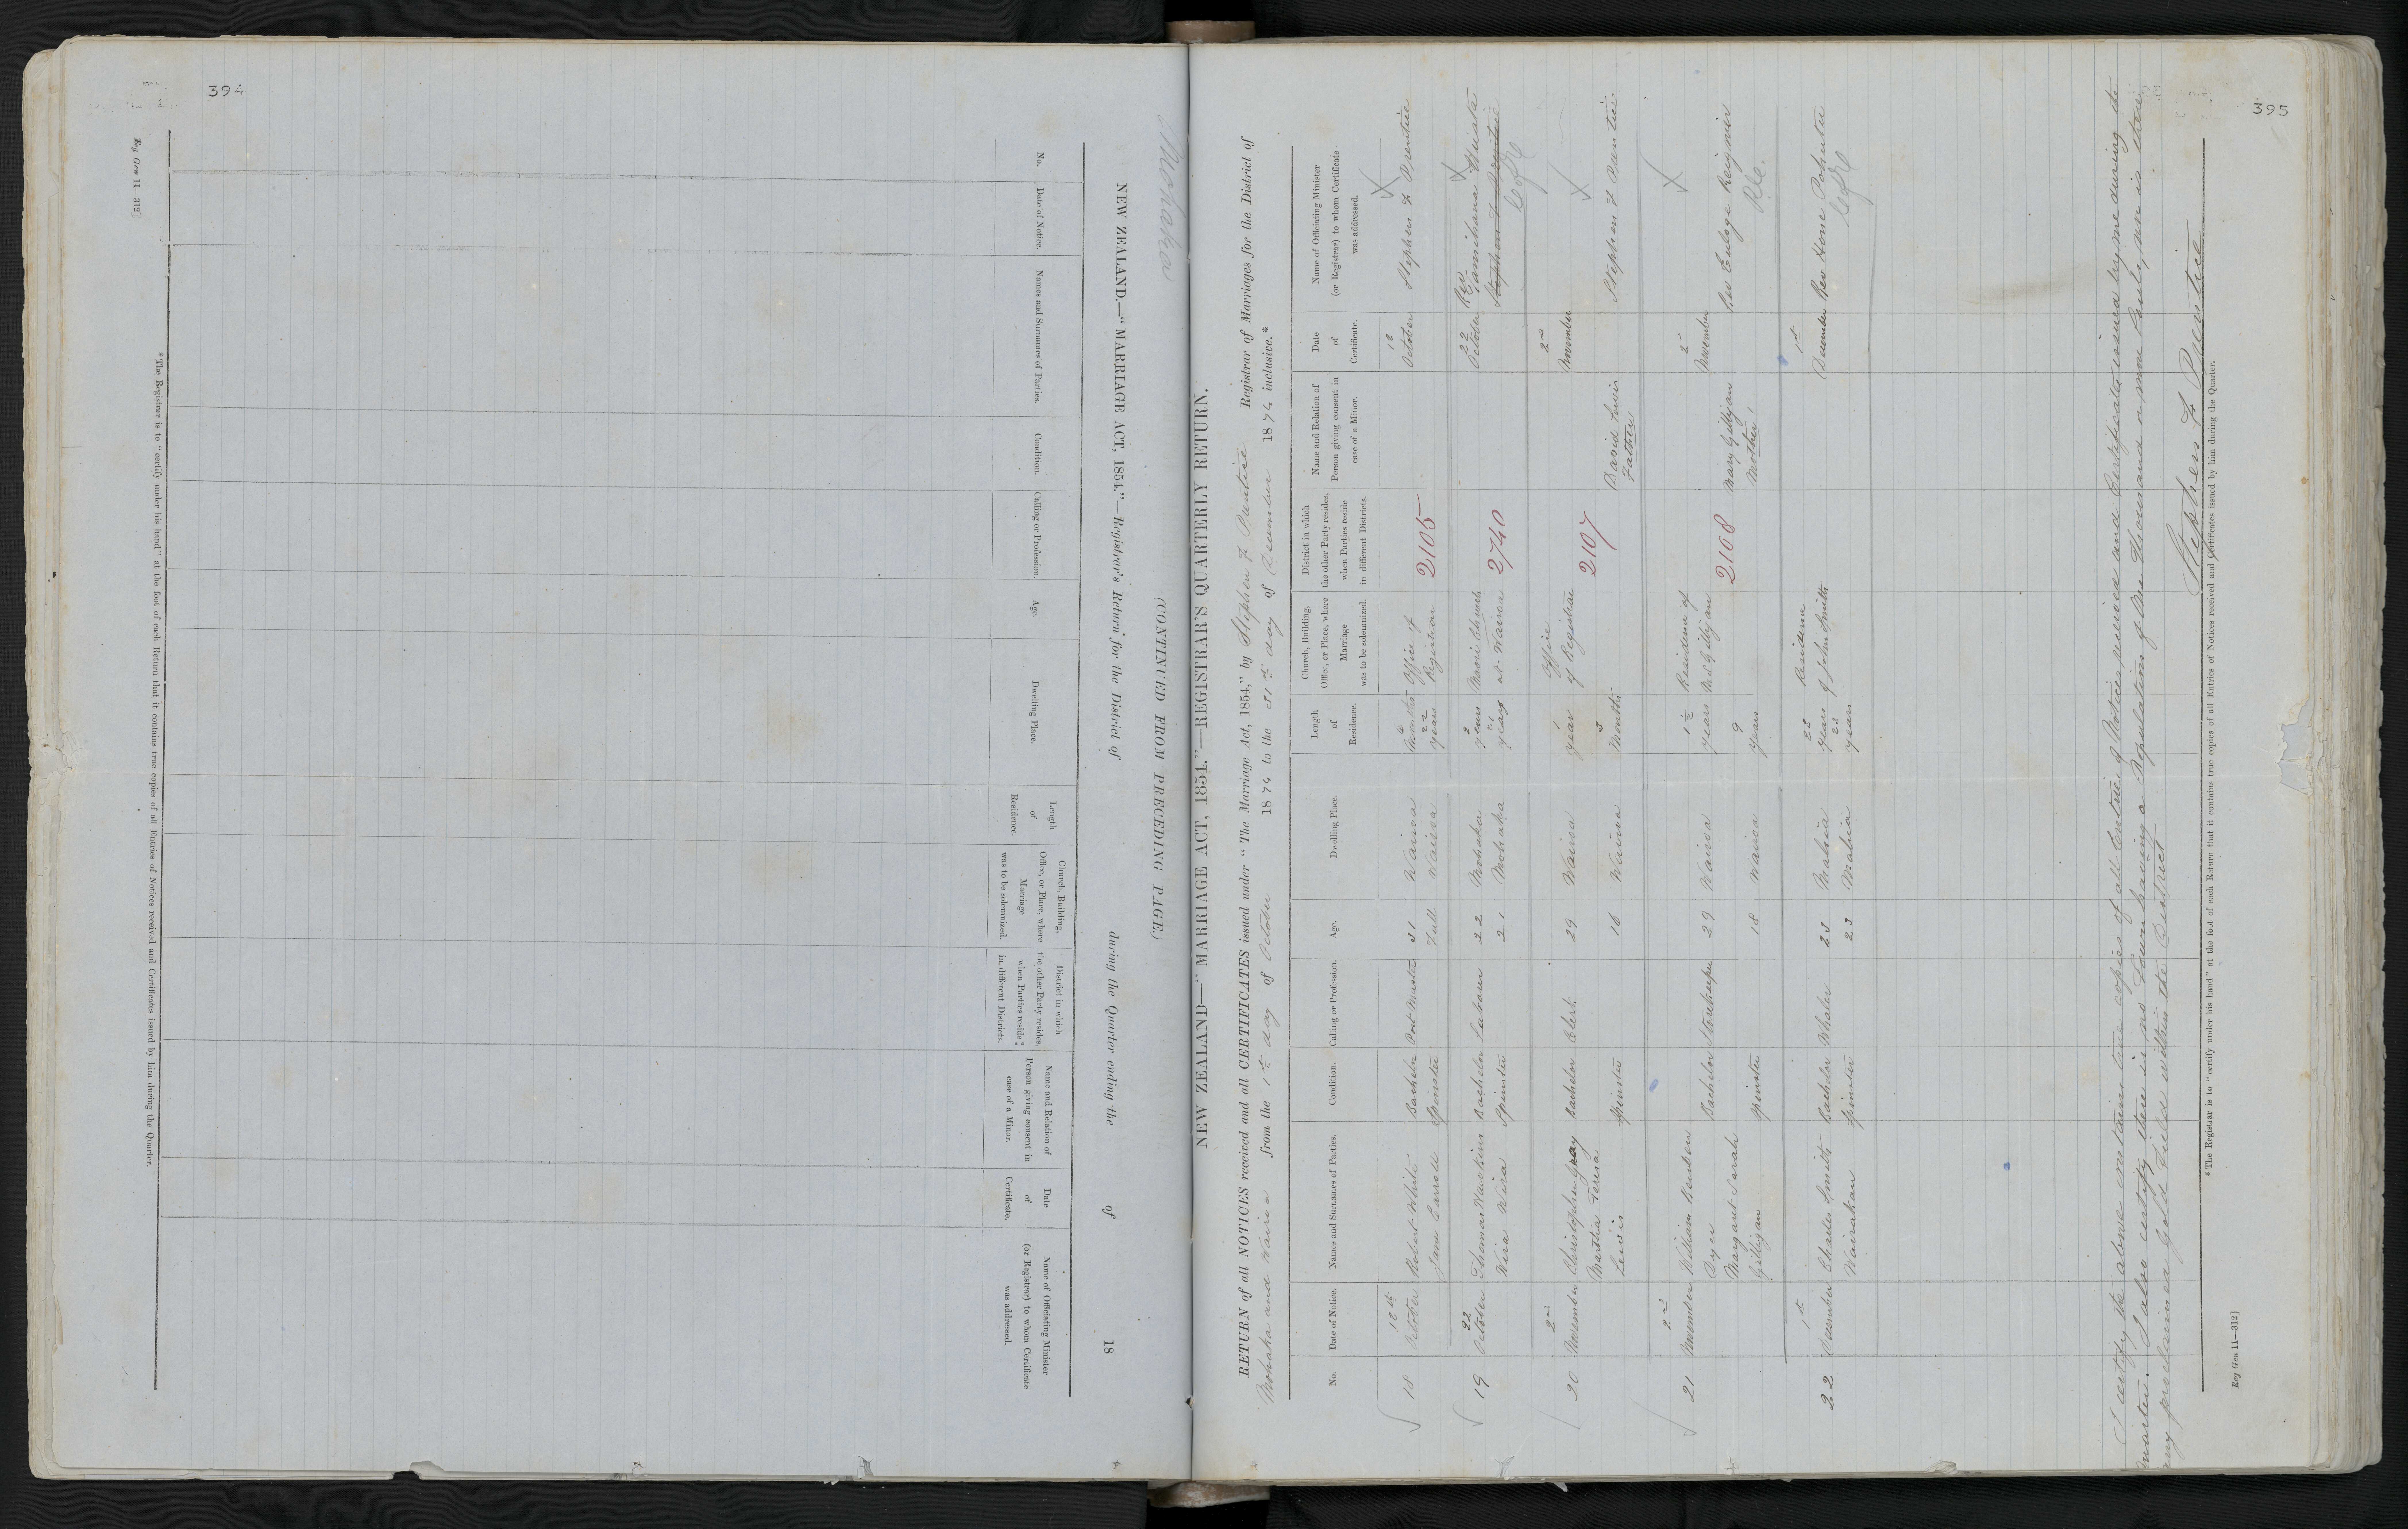 394
Reg Gen 11—312]
Mohaka
(CONTINUED FROM PRECEDING PAGE.)
NEW ZEALAND.—"MARRIAGE ACT, 1854."—Registrar's Return for the District of during the Quarter ending the of 18
No.
Date of Notice.
Names and Surnames of Parties.
Condition.
Calling or Profession.
Age.
Dwelling Place.
Length of Residence.
Church, Building, Office, or Place, where Marriage was to be solemnized.
District in which the other Party resides, when Parties reside in different Districts.
Name and Relation of Person giving consent in case of a Minor.
Date of Certificate.
Name of Officiating Minister (or Registrar) to whom Certificate was addressed.
* The Registrar is to "certify under his hand" at the foot of each Return that it contains true copies of all Entries of Notices received and Certificates issued by him during the Quarter.
395
NEW ZEALAND—"MARRIAGE ACT, 1854."—REGISTRAR'S QUARTERLY RETURN.
RETURN of all NOTICES received and all CERTIFICATES issued under "The Marriage Act, 1854," by Stephen F Prentice Registrar of Marriages for the District of
Mohaka and Wairoa from the 1st day of October 1874 to the 31st day of December 1874 inclusive.*
No. Date of Notice. Names and Surnames of Parties. Condition. Calling or Profession. Age. Dwelling Place. Length of Residence. Church, Building, Office, or Place, where Marriage was to be solemnized. District in which the other Party resides, when Parties reside in different Districts. Name and Relation of Person giving consent in case of a Minor. Date of Certificate. Name of Officiating Minister (or Registrar) to whom Certificate was addressed.
18 October Robert White Bachelor Post Master 31 Wairoa 6 months Office of 2105 October Stephen F Prentice
Jane Carroll Spinster Full Wairoa 22 years Registrar
19 22 October Thomas Mackins Bachelor Labour 22 Mohaka years Maori Church 2740 22 October Rev Tamihana Huata
Wira Wira Spinster 21 Mohaka 21 years at Wairoa Stephen F Prentice
C of E
20 2nd November Christopher Gray Bachelor Clerk 29 Wairoa 1 year Office of Registrar 2107 2nd November
Martha Teresa Lewis Spinster 16 Wairoa 3 Months David Lewis Father Stephen F Prentice
21 2nd November William Benben Dyer Bachelor Storekeeper 29 Wairoa 1½ years Residence of Mrs Gilligan 2108 2nd November
Margaret Sarah Gilligan Spinster 18 Wairoa 9 years Mary Gilligan Mother Rev Euloge Reignier
R.C.
22 1st December Charles Smith Bachelor Whaler 23 Mahia 23 years Residence of John Smith 1st December Rev Hone Pohutu
Wairakau Spinster 23 Mahia 23 years C of E
I certify the above contains true copies of all Entries of Notices received and Certificates issued by me during the
Quarter. I also certify there is no Town having a Population of One Thousand or more Persons, nor is there
any proclaimed Gold Field within the District
Stephen F Prentice
* The Registrar is to "certify under his hand" at the foot of each Return that it contains true copies of all Entries of Notices received and Certificates issued by him during the Quarter.
Reg Gen 11—312]